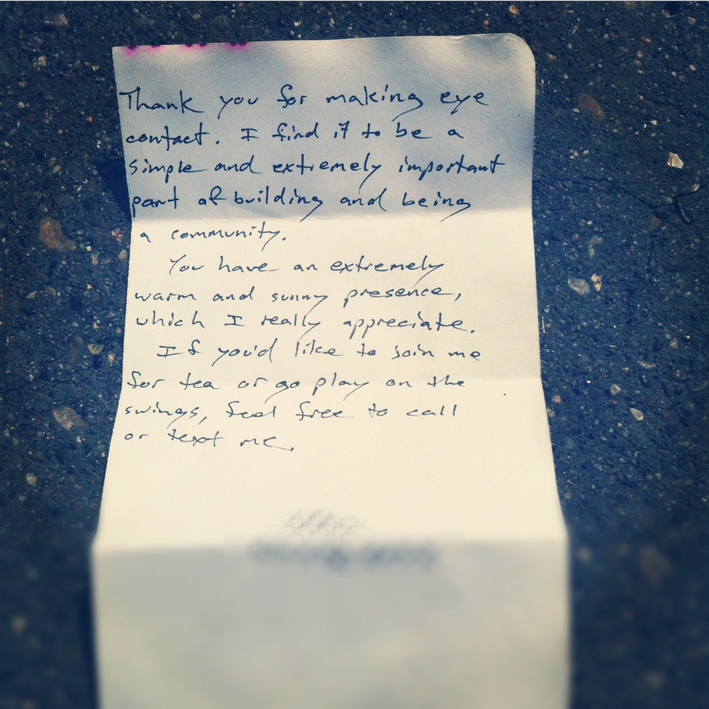 Thank you for making eye
contact. I find it to be a
simple and extremely important
part of building and being
a community.
You have an extremely
warm and sunny presence,
which I really appreciate.
If you'd like to join me
for tea or go play on the
swings, feel free to call
or text me.